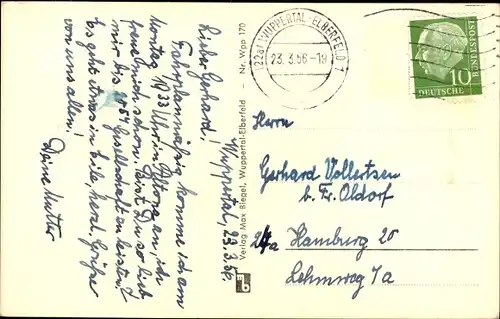 Wuppertal, 23.3.56.
Lieber Gerhard!
Fahrplanmäßig komme ich am
Montag 10³³ Uhr in Altona an, ich
freue mich schon. Bist Du so lieb
mir bis Gesellschaft zu leisten?
Es geht etwas in Eile, herzl. Grüße
von uns allen!
Deine Mutter
Verlag Max Biegel, Wuppertal-Elberfeld – Nr. Wpp 170
(22a) WUPPERTAL-ELBERFELD 1
23.3.56-19
10
DEUTSCHE
BUNDESPOST
Herrn
Gerhard Vollertsen
b. Fr. Oldorf
24a Hamburg 20
Lehmweg 7a